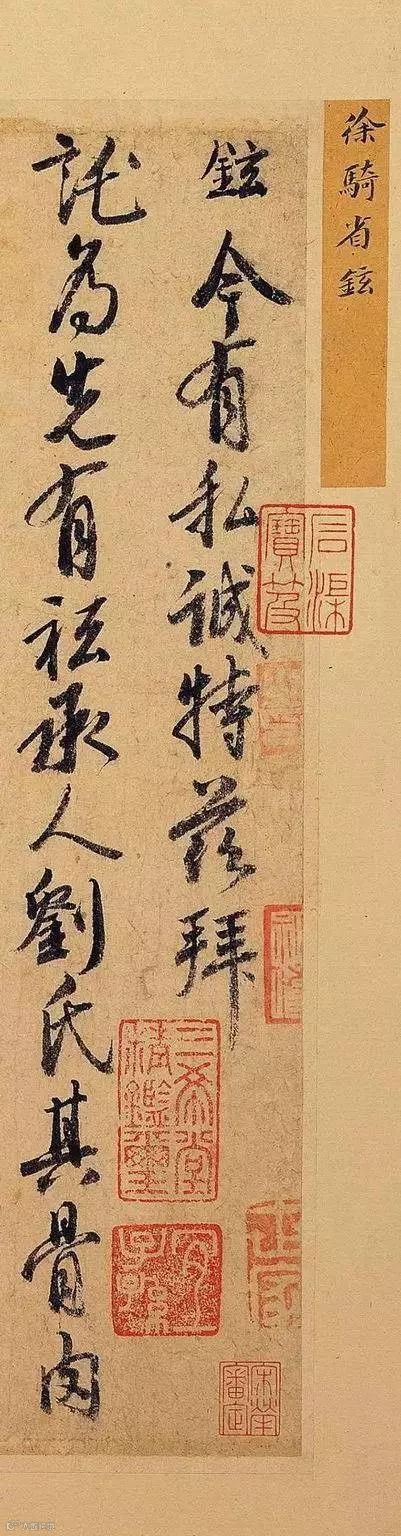 徐騎省鉉
石渠寶笈
鉉今有私誠特茲拜
託為先有祗承人劉氏其骨肉
三希堂精鑑璽
宜子孫
宋犖審定